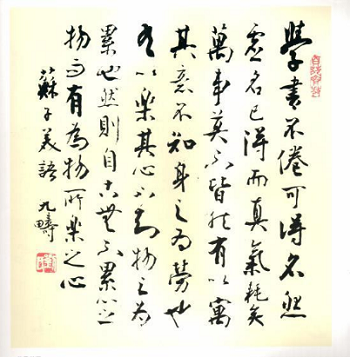 學書不倦可得名然
虛名已得而真氣耗矣
萬事莫不皆然有以寓
其意不知身之為勞也
有以樂其心不知物之為
累也然則自古無不累心之
物而有為物所樂之心
蘇子美語 九疇